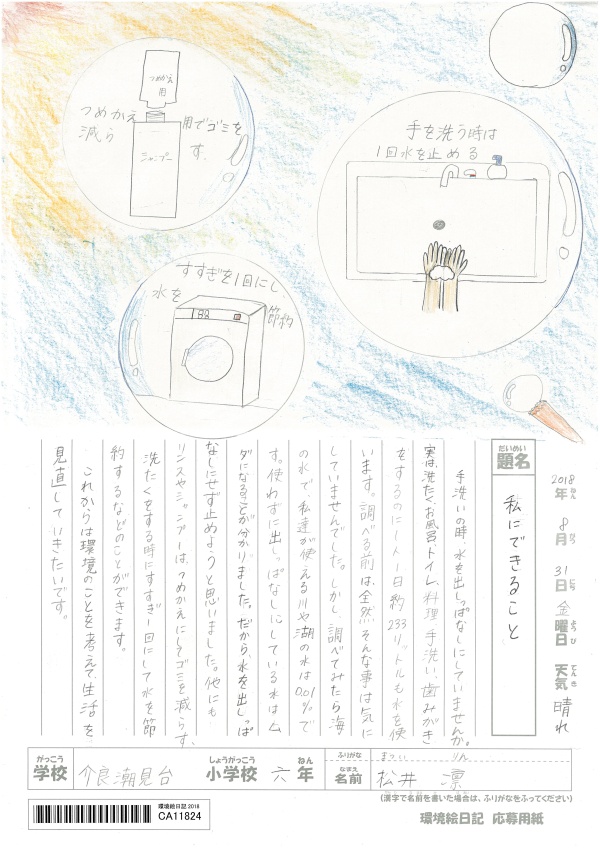 つめかえ
用
つめかえ用でゴミを
減らす
シャンプー
手を洗う時は
1回水を止める
すすぎを1回にし、
水を節約
2018年 8月 31日 金曜日 天気 晴れ
ねん がつ にち よう び てん き
だいめい
題名
私にできること
手洗いの時、水を出しっぱなしにしていませんか。
実は、洗たく、お風呂、トイレ、料理、手洗い、歯みがき
をするのに一人一日約233リットルも水を使
います。調べる前は、全然そんな事は気に
していませんでした。しかし、調べてみたら海
の水で、私達が使える川や湖の水は0.01%で
す。使わずに出しっぱなしにしている水はム
ダになることが分かりました。だから、水を出しっぱ
なしにせず止めようと思いました。他にも
リンスやシャンプーは、つめかえにしてゴミを減らす、
洗たくをする時にすすぎ一回にして水を節
約するなどのことができます。
これからは環境のことを考えて、生活を
見直していきたいです。
がっこう
学校
介良潮見台
しょうがっこう
小学校
六
ねん
年
ふりがな
まつい りん
なまえ
名前
松井 凛
(漢字で名前を書いた場合は、ふりがなをふってください)
環境絵日記 2018
CA11824
環境絵日記 応募用紙